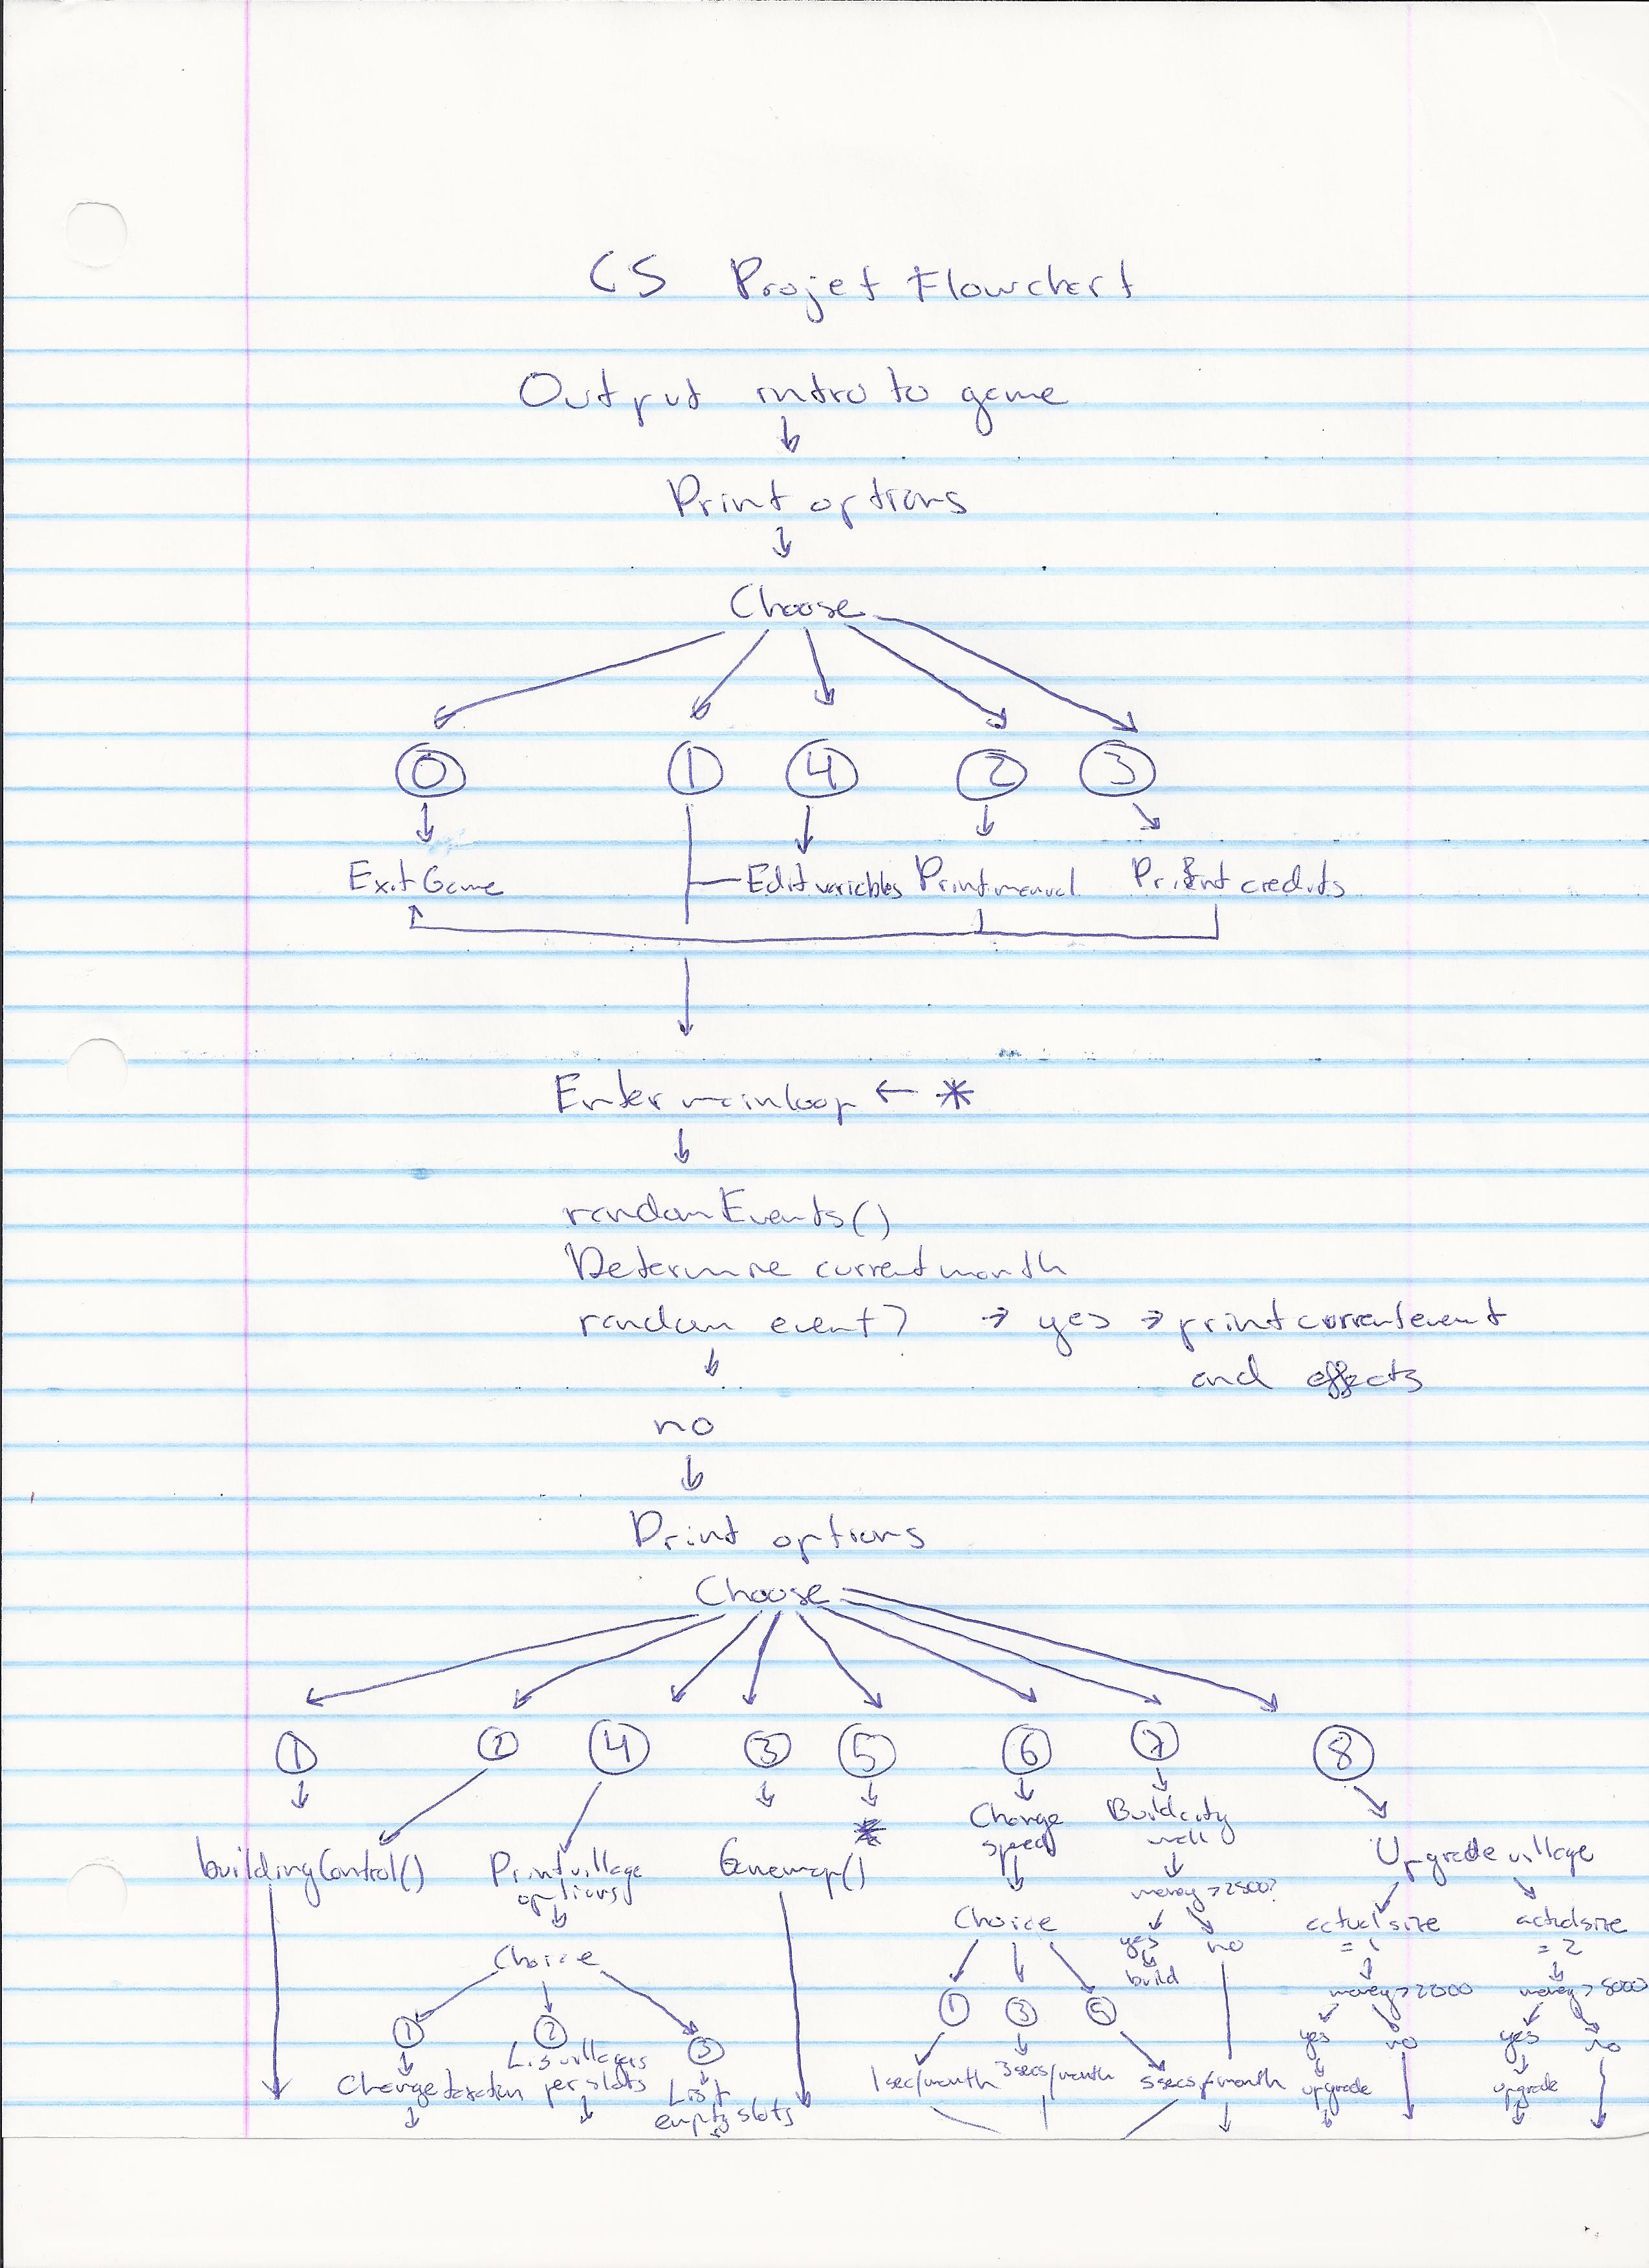 CS Projet Flowchart
Output intro to game
Print options
Choose
0 1 4 2 3
Exit Game Edit variables Print manual Print credits
Enter main loop ← *
randomEvents()
Determine current month
random event? → yes → print current event
and effects
no
Print options
Choose
1 2 4 3 5 6 7 8
buildingControl()
Print village
options
Choice
1 2 3
Change taxation
List villagers
per slots
List
empty slots
Gamemap()
*
Change
speed
Choice
1 3 5
1sec/month 3secs/month 5secs/month
Build city
wall
money > 2500?
yes no
build
Upgrade village
actual size
= 1
money > 2000
yes no
upgrade
actual size
= 2
money > 5000
yes no
upgrade